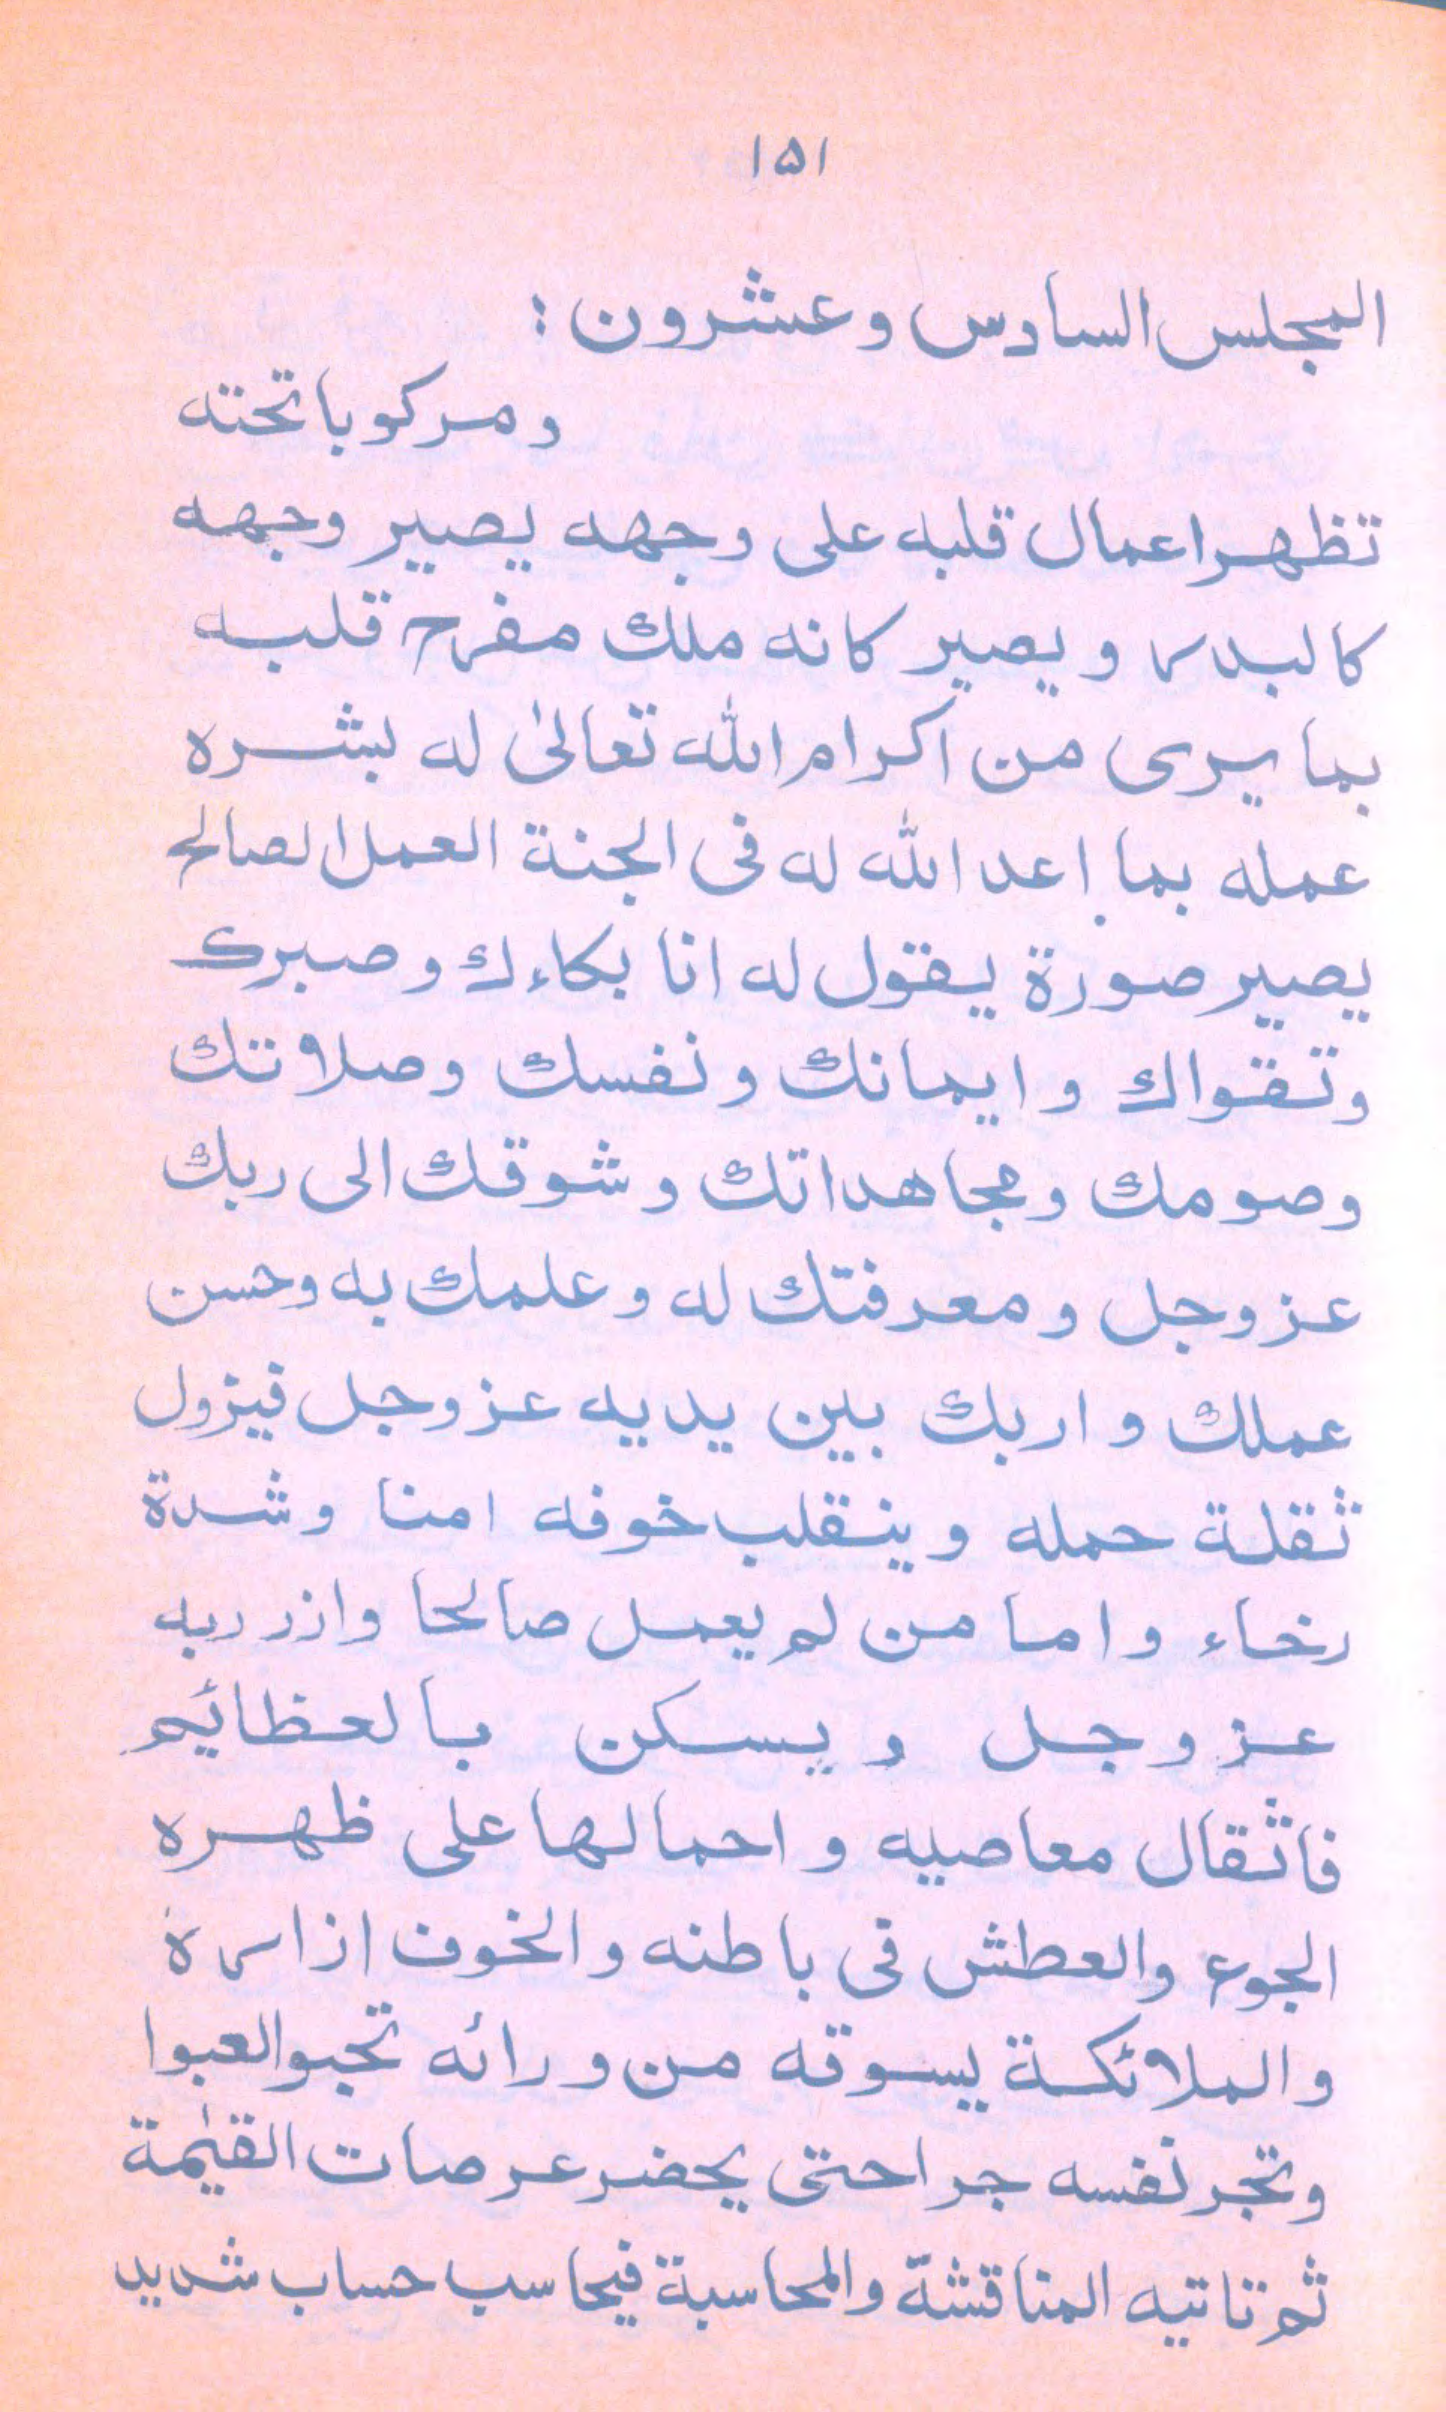 ١٥١
المجلس السادس وعشرون :
ومركوبا تحته
تظهر اعمال قلبه على وجهه يصير وجهه
كالبدر ويصير كانه ملك مفرح قلبه
بما يرى من اكرام الله تعالىٰ له بشره
عمله بما اعد الله له فى الجنة العمل الصالح
يصير صورة يقول له انا بكاءك وصبرك
وتقواك وايمانك ونفسك وصلاتك
وصومك ومجاهداتك وشوقك الى ربك
عزوجل ومعرفتك له وعلمك به وحسن
عملك واربك بين يديه عزوجل فيزول
ثقلة حمله وينقلب خوفه امنا وشدة
رخاء واما من لم يعمل صالحا وازر ربه
عزوجل ويسكن بالعظائيم
فاثقال معاصيه واحمالها على ظهره
الجوع والعطش فى باطنه والخوف ازاره
والملائكة يسوقه من ورائه تحبو العبوا
وتجر نفسه جرا حتى يحضر عرصات القيٰمة
ثم تاتيه المناقشة والمحاسبة فيحاسب حساب شديد